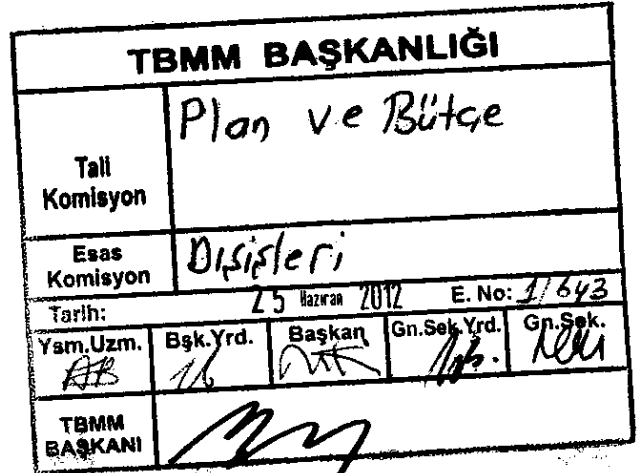 TBMM BAŞKANLIĞI
Tali Komisyon
Plan ve Bütçe
Esas Komisyon
Dışişleri
Tarih: 25 Haziran 2012 E. No: 1/643
Ysm.Uzm. Bşk.Yrd. Başkan Gn.Sek.Yrd. Gn.Sek.
TBMM BAŞKANI